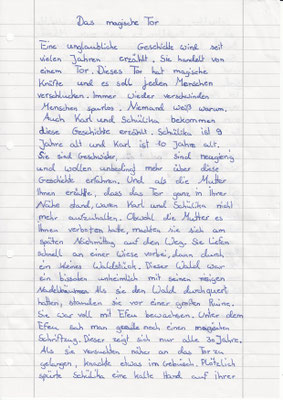 Das magische Tor
Eine unglaubliche Geschichte wird seit
vielen Jahren erzählt. Sie handelt von
einem Tor. Dieses Tor hat magische
Kräfte und es soll jeden Menschen
verschlucken. Immer wieder verschwinden
Menschen spurlos. Niemand weiß warum.
Auch Karl und Schülika bekommen
diese Geschichte erzählt. Schülika ist 9
Jahre alt und Karl ist 10 Jahre alt.
Sie sind Geschwister, sind neugierig
und wollen unbedingt mehr über diese
Geschichte erfahren. Und als die Mutter
Ihnen erzählte, dass das Tor ganz in Ihrer
Nähe stand, waren Karl und Schülika nicht
mehr aufzuhalten. Obwohl die Mutter es
Ihnen verboten hatte, machten sie sich am
späten Nachmittag auf den Weg. Sie liefen
schnell an einer Wiese vorbei, dann durch
ein kleines Waldstück. Dieser Wald war
ein bisschen unheimlich mit seinen riesigen
Nadelbäumen. Als sie den Wald durchquert
hatten, standen sie vor einer großen Ruine.
Sie war voll mit Efeu bewachsen. Unter dem
Efeu sah man gerade noch einen magischen
Schriftzug. Dieser zeigt sich nur alle 30 Jahre.
Als sie versuchten näher an das Tor zu
gelangen, knackte etwas im Gebüsch. Plötzlich
spürte Schülika eine kalte Hand auf ihrer